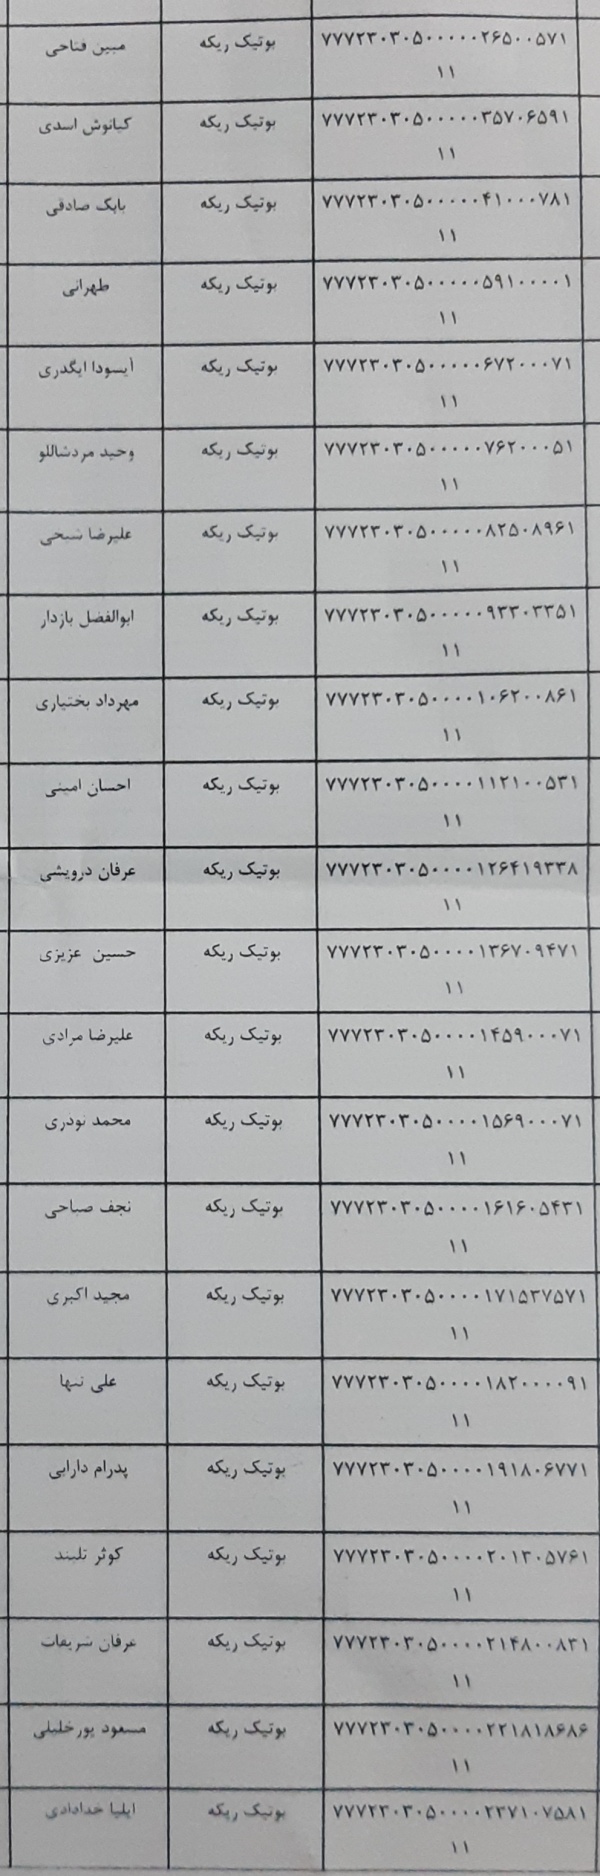 ۷۷۷۲۳۰۳۰۵۰۰۰۰۰۲۶۵۰۰۵۷۱ بوتیک ریکه مبین فتاحی
۱۱
۷۷۷۲۳۰۳۰۵۰۰۰۰۰۳۵۷۰۶۵۹۱ بوتیک ریکه کیانوش اسدی
۱۱
۷۷۷۲۳۰۳۰۵۰۰۰۰۰۴۱۰۰۰۷۸۱ بوتیک ریکه بابک صادقی
۱۱
۷۷۷۲۳۰۳۰۵۰۰۰۰۰۵۹۱۰۰۰۰۱ بوتیک ریکه طهرانی
۱۱
۷۷۷۲۳۰۳۰۵۰۰۰۰۰۶۷۲۰۰۰۷۱ بوتیک ریکه آیسودا ایگدری
۱۱
۷۷۷۲۳۰۳۰۵۰۰۰۰۰۷۶۲۰۰۰۵۱ بوتیک ریکه وحید مردشاللو
۱۱
۷۷۷۲۳۰۳۰۵۰۰۰۰۰۸۲۵۰۸۹۶۱ بوتیک ریکه علیرضا شیحی
۱۱
۷۷۷۲۳۰۳۰۵۰۰۰۰۰۹۳۳۰۳۳۵۱ بوتیک ریکه ابوالفضل بازدار
۱۱
۷۷۷۲۳۰۳۰۵۰۰۰۰۱۰۶۲۰۰۸۶۱ بوتیک ریکه مهرداد بختیاری
۱۱
۷۷۷۲۳۰۳۰۵۰۰۰۰۱۱۲۱۰۰۵۳۱ بوتیک ریکه احسان امینی
۱۱
۷۷۷۲۳۰۳۰۵۰۰۰۰۱۲۶۴۱۹۳۳۸ بوتیک ریکه عرفان درویشی
۱۱
۷۷۷۲۳۰۳۰۵۰۰۰۰۱۳۶۷۰۹۴۷۱ بوتیک ریکه حسین عزیزی
۱۱
۷۷۷۲۳۰۳۰۵۰۰۰۰۱۴۵۹۰۰۰۷۱ بوتیک ریکه علیرضا مرادی
۱۱
۷۷۷۲۳۰۳۰۵۰۰۰۰۱۵۶۹۰۰۰۷۱ بوتیک ریکه محمد نودری
۱۱
۷۷۷۲۳۰۳۰۵۰۰۰۰۱۶۱۶۰۵۴۳۱ بوتیک ریکه نجف صباحی
۱۱
۷۷۷۲۳۰۳۰۵۰۰۰۰۱۷۱۵۳۷۵۷۱ بوتیک ریکه مجید اکبری
۱۱
۷۷۷۲۳۰۳۰۵۰۰۰۰۱۸۲۰۰۰۰۹۱ بوتیک ریکه علی تنها
۱۱
۷۷۷۲۳۰۳۰۵۰۰۰۰۱۹۱۸۰۶۷۷۱ بوتیک ریکه پدرام دارابی
۱۱
۷۷۷۲۳۰۳۰۵۰۰۰۰۲۰۱۳۰۵۷۶۱ بوتیک ریکه کوثر تلبند
۱۱
۷۷۷۲۳۰۳۰۵۰۰۰۰۲۱۴۸۰۰۸۳۱ بوتیک ریکه عرفان شریفات
۱۱
۷۷۷۲۳۰۳۰۵۰۰۰۰۲۲۱۸۱۸۶۸۶ بوتیک ریکه مسعود پورخلیلی
۱۱
۷۷۷۲۳۰۳۰۵۰۰۰۰۲۳۷۱۰۷۵۸۱ بوتیک ریکه ایلیا خدادادی
۱۱